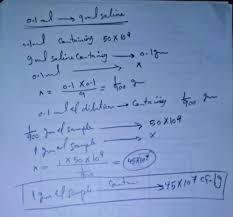 0.1 ml → 9ml saline
0.1ml containing 50x10⁴
9ml saline containing → 0.1gm
0.1 ml → x
x = 0.1 x 0.1 / 9 = 1/900 gm
0.1 ml of dilution → containing 1/900 gm
1/900 gm of sample → 50x10⁴
1 gm of sample → x
x = 1 x 50 x 10⁴ / 1/900 = 45x10⁷
1 gm of sample contain → 45x10⁷ CFU/g